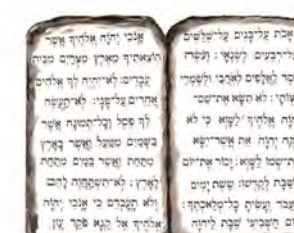 אנכי יהוה אלהיך אשר
הוצאתיך מארץ מצרים מבית
עבדים: לא־יהיה לך אלהים
אחרים על־פני: לא־תעשה
לך פסל וכל־תמונה אשר
בשמים ממעל ואשר בארץ
מתחת ואשר במים מתחת
לארץ: לא־תשתחוה להם
ולא תעבדם כי אנכי יהוה
אלהיך אל קנא פקד עון
אבת על־בנים על־שלשים
על־רבעים לשנאי: ועשה
חסד לאלפים לאהבי ולשמרי
מצותי: לא תשא את־שם־
יהוה אלהיך לשוא כי לא
ינקה יהוה את אשר־ישא
את־שמו לשוא: זכור את־יום
השבת לקדשו: ששת ימים
תעבד ועשית כל־מלאכתך:
ויום השביעי שבת ליהוה